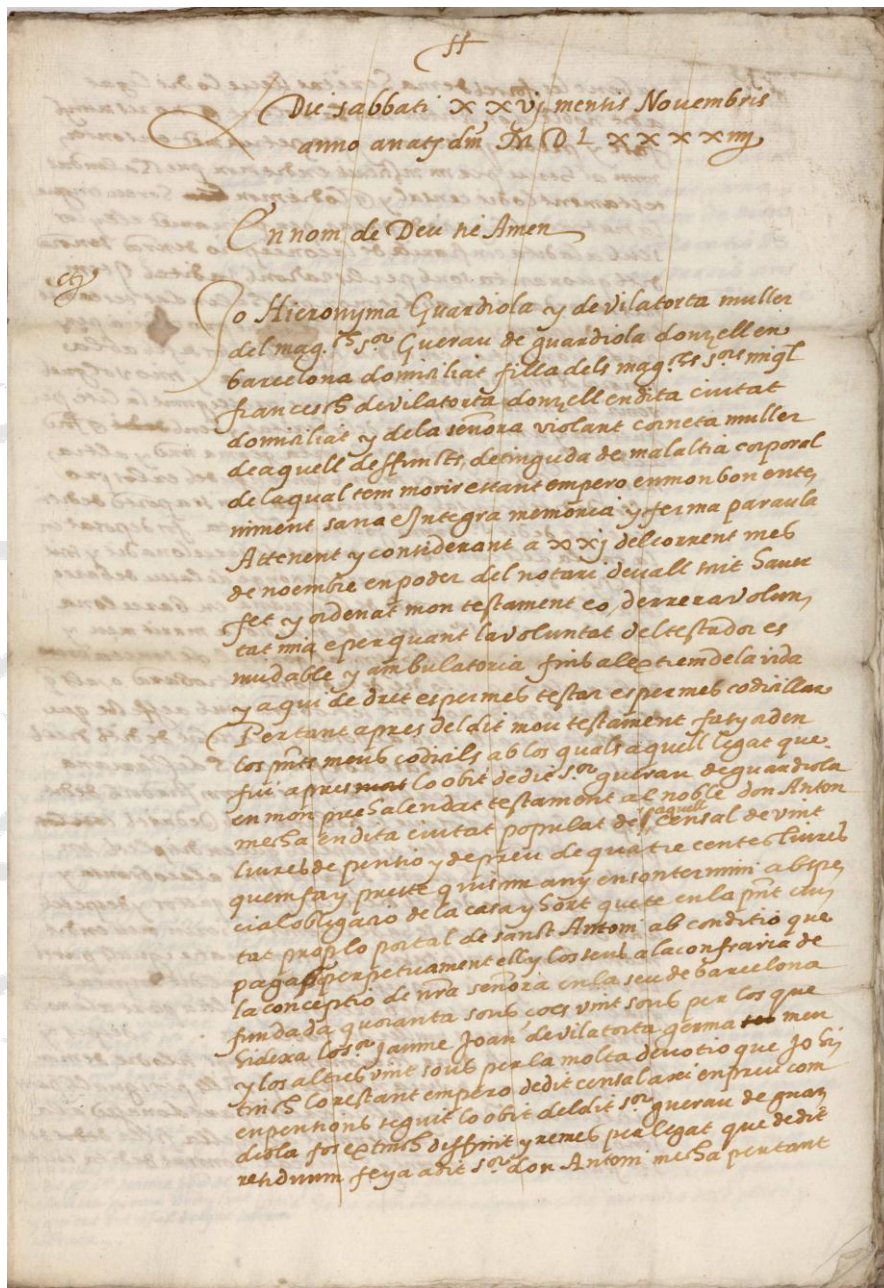 Die sabbati xxvj mensis Novembris
anno a natt dm M D L xxxxiiij
En nom de Deu sie Amen
Jo Hieronyma Guardiola y de vilatorta muller
del mag.ch s.or Guerau de guardiola donzell en
barcelona domiciliat filla dels mag.chs s.ors migl
francesch de vilatorta donzell en dita ciutat
domiciliat y de la señora violant corneta muller
de aquell deffuncts, detinguda de malaltia corporal
de la qual tem morir estant empero en mon bon ente
niment sana e integra memoria y ferma paraula
Attenent y considerant a xxj del corrent mes
de noembre en poder del notari devall scrit haver
fet y ordenat mon testament eo, derrera volun
tat mia e per quant la voluntat del testador es
mudable y ambulatoria fins al extrem de la vida
y a qui de dret es permes testar es permes codicillar
Per tant apres del dit mon testament fas y aden
los pnts meus codicils ab los quals aquell legat que
fiu apres mort lo obit de dit s.or guerau de guardiola
en mon prechalendat testament al noble don Anton
mecha en dita ciutat populat de aquell censal de vint
liures de pensio y de preu de quatre centes liures
quem fa y preste quiscun any en son termini ab spe
cial obligacio de la casa y hort que te en la pnt ciu
tat prop lo portal de sanct Antoni ab conditio que
pagas perpetuament ell y los seus a la confraria de
la conceptio de nra señora en la seu de barcelona
fundada quoranta sous, coes vint sous per los que
hi dexa lo s.or Jaume Joan de vilatorta germa meu
y los altres vint sous per la molta devotio que Jo hi
tinch lo restant empero de dit censal axi en preu com
en pensions seguit lo obit del dit s.or guerau de guar
diola fos extinch diffinit y remes per legat que de dit
residuum feya a dit s.or don Antoni mecha per tant